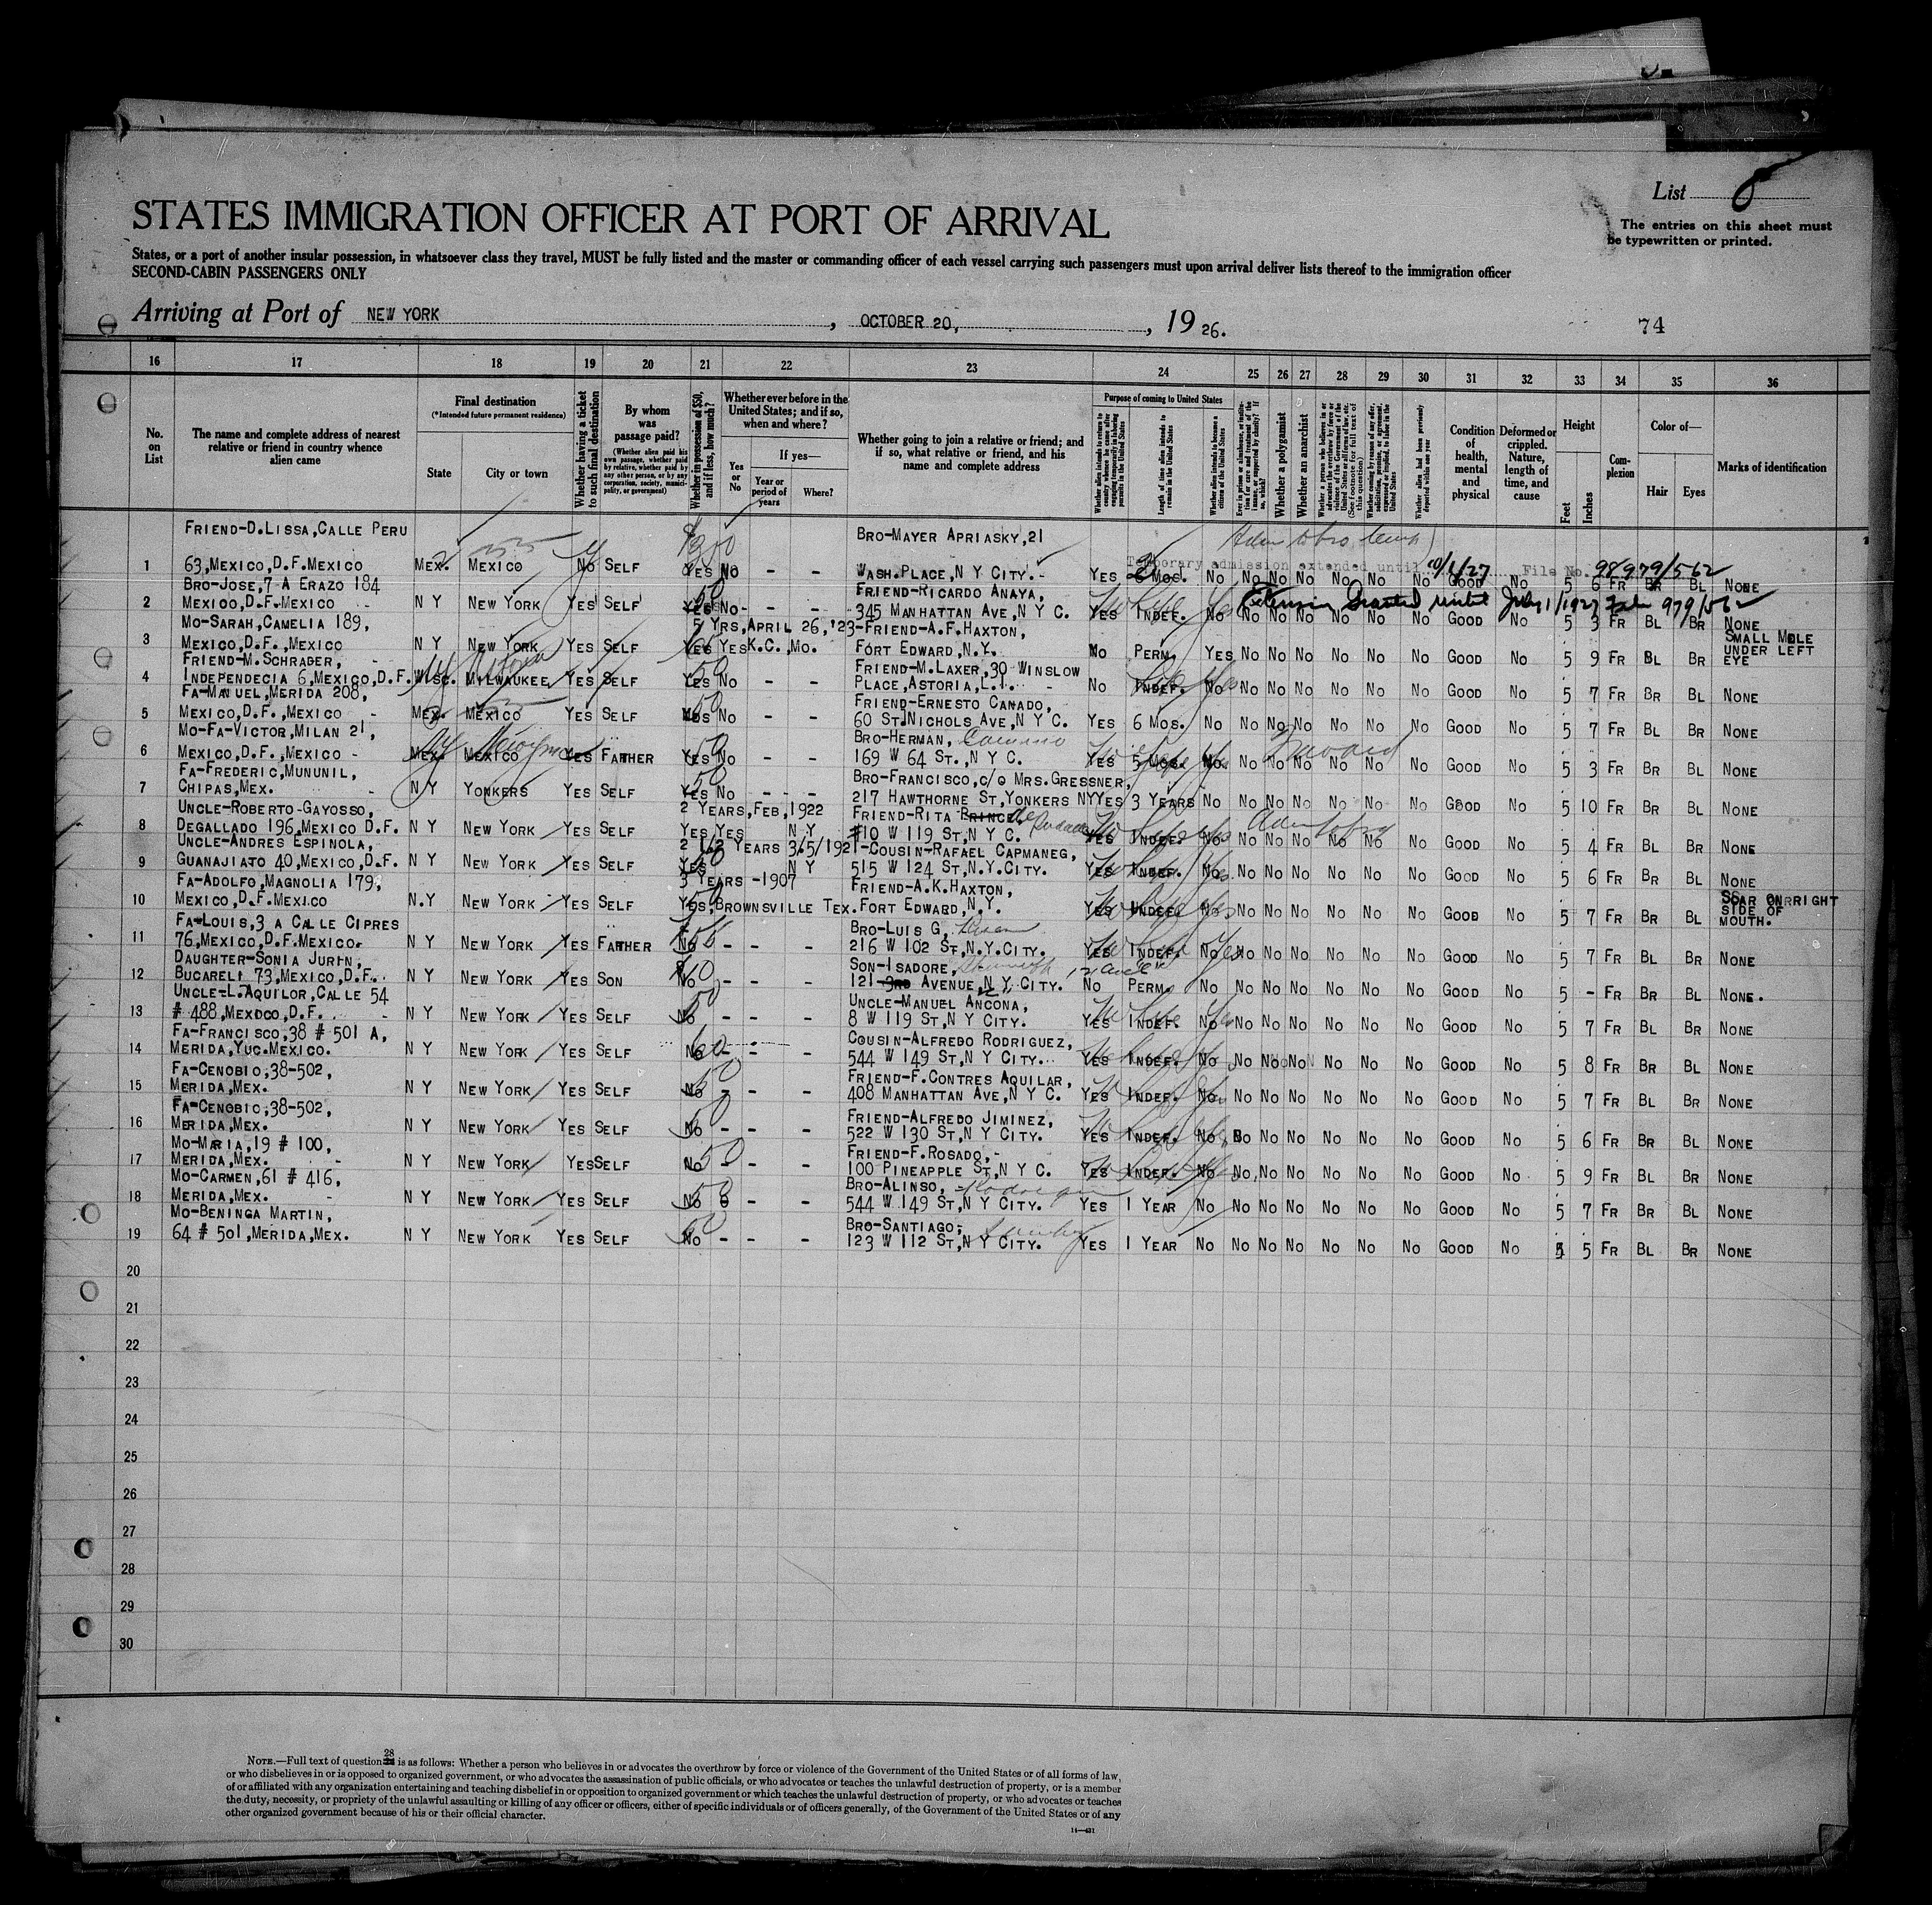 List
STATES IMMIGRATION OFFICER AT PORT OF ARRIVAL
The entries on this sheet must
be typewritten or printed.
States, or a port of another insular possession, in whatsoever class they travel, MUST be fully listed and the master or commanding officer of each vessel carrying such passengers must upon arrival deliver lists thereof to the immigration officer
SECOND-CABIN PASSENGERS ONLY
Arriving at Port of NEW YORK, OCTOBER 20, 19 26.
74
16 17 18 19 20 21 22 23 24 25 26 27 28 29 30 31 32 33 34 35 36
No. on List
The name and complete address of nearest relative or friend in country whence alien came
Final destination
(*Intended future permanent residence)
State
City or town
Whether having a ticket to such final destination
By whom was passage paid?
(Whether alien paid his own passage, whether paid by relative, whether paid by any other person, or by any corporation, society, municipality, or government)
Whether in possession of $50, and if less, how much?
Whether ever before in the United States; and if so, when and where?
Yes or No
If yes—
Year or period of years
Where?
Whether going to join a relative or friend; and if so, what relative or friend, and his name and complete address
Purpose of coming to United States
Length of time alien intends to remain in the United States
Whether alien intends to become a citizen of the United States
Whether a polygamist
Whether an anarchist
Condition of health, mental and physical
Deformed or crippled. Nature, length of time, and cause
Height
Feet
Inches
Complexion
Color of—
Hair
Eyes
Marks of identification
FRIEND-D.LISSA,CALLE PERU BRO-MAYER APRIASKY,21
Temporary admission extended until 10/1/27 File No. 98979/562
1 63,MEXICO,D.F.MEXICO MEX. MEXICO NO SELF YES NO - - WASH.PLACE,N Y CITY.- YES 6 MOS. NO NO NO NO NO NO NO GOOD NO 5 6 FR BR BL NONE
Extension Granted until July 1/1927 File 979/562
BRO-JOSE,7-A ERAZO 184 FRIEND-RICARDO ANAYA,
2 MEXICO,D.F.MEXICO N Y NEW YORK YES SELF YES NO - - 345 MANHATTAN AVE,N Y C. YES INDEF. NO NO NO NO NO NO NO GOOD NO 5 3 FR BL BR NONE
MO-SARAH,CAMELIA 189, 5 YRS,APRIL 26,'23-FRIEND-A.F.HAXTON,
3 MEXICO,D.F.,MEXICO N Y NEW YORK YES SELF YES YES K.C.,MO. FORT EDWARD,N.Y. NO PERM. YES NO NO NO NO NO NO GOOD NO 5 9 FR BL BR SMALL MOLE UNDER LEFT EYE
FRIEND-M.SCHRADER, FRIEND-M.LAXER,30 WINSLOW
4 INDEPENDECIA 6,MEXICO,D.F. WISC. MILWAUKEE, YES SELF YES NO - - PLACE,ASTORIA,L.I. NO INDEF. NO NO NO NO NO NO NO GOOD NO 5 7 FR BR BL NONE
FA-MANUEL,MERIDA 208, FRIEND-ERNESTO CANADO,
5 MEXICO,D.F.,MEXICO MEX. MEXICO YES SELF YES NO - - 60 ST.NICHOLS AVE,N Y C. YES 6 MOS. NO NO NO NO NO NO NO GOOD NO 5 7 FR BR BL NONE
MO-FA-VICTOR,MILAN 21, BRO-HERMAN,
6 MEXICO,D.F.,MEXICO - MEX. MEXICO YES FATHER YES NO - - 169 W 64 ST.,N Y C. YES 5 MOS. NO NO NO NO NO NO NO GOOD NO 5 3 FR BR BL NONE
FA-FREDERIC,MUNUNIL, BRO-FRANCISCO,C/O MRS.GRESSNER,
7 CHIPAS,MEX. N Y YONKERS YES SELF YES NO - - - 217 HAWTHORNE ST,YONKERS NY YES 3 YEARS NO NO NO NO NO NO NO GOOD NO 5 10 FR BR BL NONE
UNCLE-ROBERTO-GAYOSSO, 2 YEARS,FEB,1922 FRIEND-RITA PRINCE,
8 DEGALLADO 196,MEXICO D.F. N Y NEW YORK YES SELF YES YES N Y #10 W 119 ST,N Y C. YES INDEF. NO NO NO NO NO NO NO GOOD NO 5 4 FR BL BR NONE
UNCLE-ANDRES ESPINOLA, 2 1/2 YEARS 3/5/1921-COUSIN-RAFAEL CAPMANEG,
9 GUANAJIATO 40,MEXICO,D.F. N Y NEW YORK YES SELF YES N Y 515 W 124 ST,N.Y.CITY. YES INDEF. NO NO NO NO NO NO NO GOOD NO 5 6 FR BL BR NONE
FA-ADOLFO,MAGNOLIA 179, 3 YEARS -1907 FRIEND-A.K.HAXTON,
10 MEXICO,D.F.MEXICO N.Y NEW YORK YES SELF YES,BROWNSVILLE TEX. FORT EDWARD,N.Y. YES UNDEF. NO NO NO NO NO NO NO GOOD NO 5 7 FR BR BL SCAR ON RIGHT SIDE OF MOUTH.
FA-LOUIS,3 A CALLE CIPRES BRO-LUIS G,
11 76,MEXICO,D.F.MEXICO. N Y NEW YORK YES FATHER NO - - - 216 W 102 ST,N.Y.CITY. YES INDEF. NO NO NO NO NO NO NO GOOD NO 5 7 FR BL BR NONE
DAUGHTER-SONIA JURIN, SON-ISADORE,
12 BUCARELI 73,MEXICO,D.F. N Y NEW YORK YES SON NO - - - 121 3RD AVENUE,N Y CITY. NO PERM. NO NO NO NO NO NO NO GOOD NO 5 - FR BR BL NONE.
UNCLE-L.AQUILOR,CALLE 54 UNCLE-MANUEL ANCONA,
13 # 488,MEXOCO,D.F. N Y NEW YORK YES SELF NO - - - 8 W 119 ST,N Y CITY. YES INDEF. NO NO NO NO NO NO NO GOOD NO 5 7 FR BL BR NONE
FA-FRANCISCO,38 # 501 A, COUSIN-ALFREDO RODRIGUEZ,
14 MERIDA,YUC.MEXICO. N Y NEW YORK YES SELF NO - - - 544 W 149 ST,N Y CITY. YES INDEF. NO NO NO NO NO NO NO GOOD NO 5 8 FR BR BL NONE
FA-CENOBIO,38-502, FRIEND-F.CONTRES AQUILAR,
15 MERIDA,MEX. N Y NEW YORK YES SELF NO - - - 408 MANHATTAN AVE,N Y C. YES INDEF. NO NO NO NO NO NO NO GOOD NO 5 7 FR BL BR NONE
FA-CENOBIO,38-502, FRIEND-ALFREDO JIMINEZ,
16 MERIDA,MEX. N Y NEW YORK YES SELF NO - - - 522 W 130 ST,N Y CITY. YES INDEF. NO NO NO NO NO NO NO GOOD NO 5 6 FR BR BL NONE
MO-MARIA,19 # 100, FRIEND-F.ROSADO,-
17 MERIDA,MEX. N Y NEW YORK YES SELF NO - - - 100 PINEAPPLE ST,N Y C. YES INDEF. NO NO NO NO NO NO NO GOOD NO 5 9 FR BL BR NONE
MO-CARMEN,61 # 416, BRO-ALINSO,
18 MERIDA,MEX. N Y NEW YORK YES SELF NO - - - 544 W 149 ST,N Y CITY. YES 1 YEAR NO NO NO NO NO NO NO GOOD NO 5 7 FR BR BL NONE
MO-BENINGA MARTIN, BRO-SANTIAGO,
19 64 # 501,MERIDA,MEX. N Y NEW YORK YES SELF NO - - - 123 W 112 ST,N Y CITY. YES 1 YEAR NO NO NO NO NO NO NO GOOD NO 5 5 FR BL BR NONE
20
21
22
23
24
25
26
27
28
29
30
NOTE.—Full text of question 28 is as follows: Whether a person who believes in or advocates the overthrow by force or violence of the Government of the United States or of all forms of law,
or who disbelieves in or is opposed to organized government, or who advocates the assassination of public officials, or who advocates or teaches the unlawful destruction of property, or is a member
of or affiliated with any organization entertaining and teaching disbelief in or opposition to organized government or which teaches the unlawful destruction of property, or who advocates or teaches
the duty, necessity, or propriety of the unlawful assaulting or killing of any officer or officers, either of specific individuals or of officers generally, of the Government of the United States or of any
other organized government because of his or their official character.